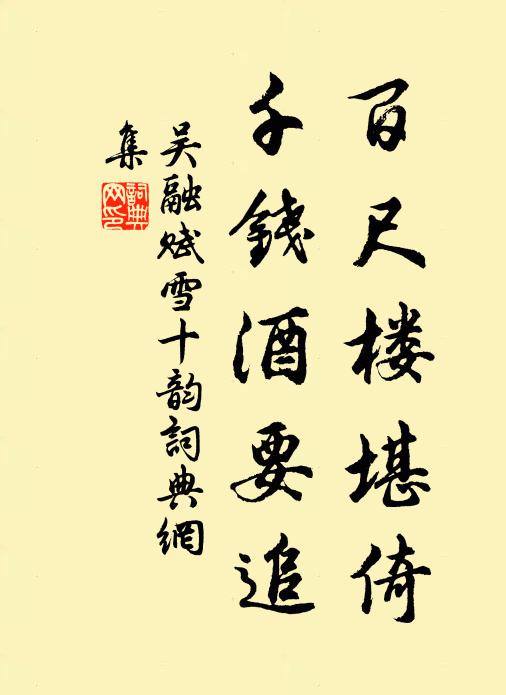 百尺楼堪倚
千錢酒要追
吴融赋雪十韵詞典網
集
詞典网印